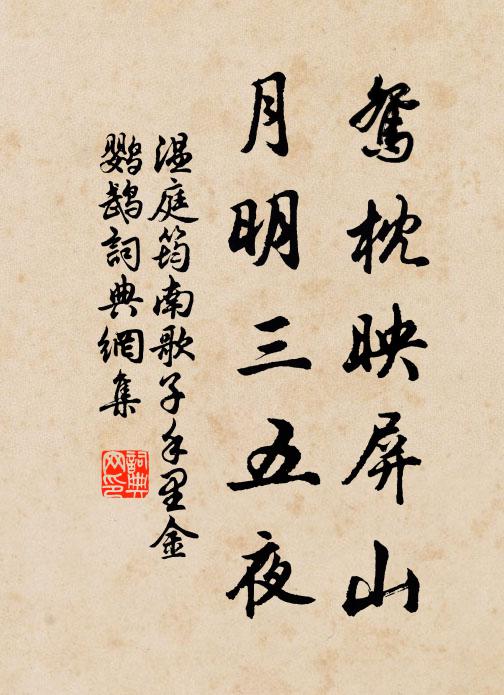 鴛枕映屏山
月明三五夜
溫庭筠南歌子手里金
鸚鵡詞典網集
詞典
网印